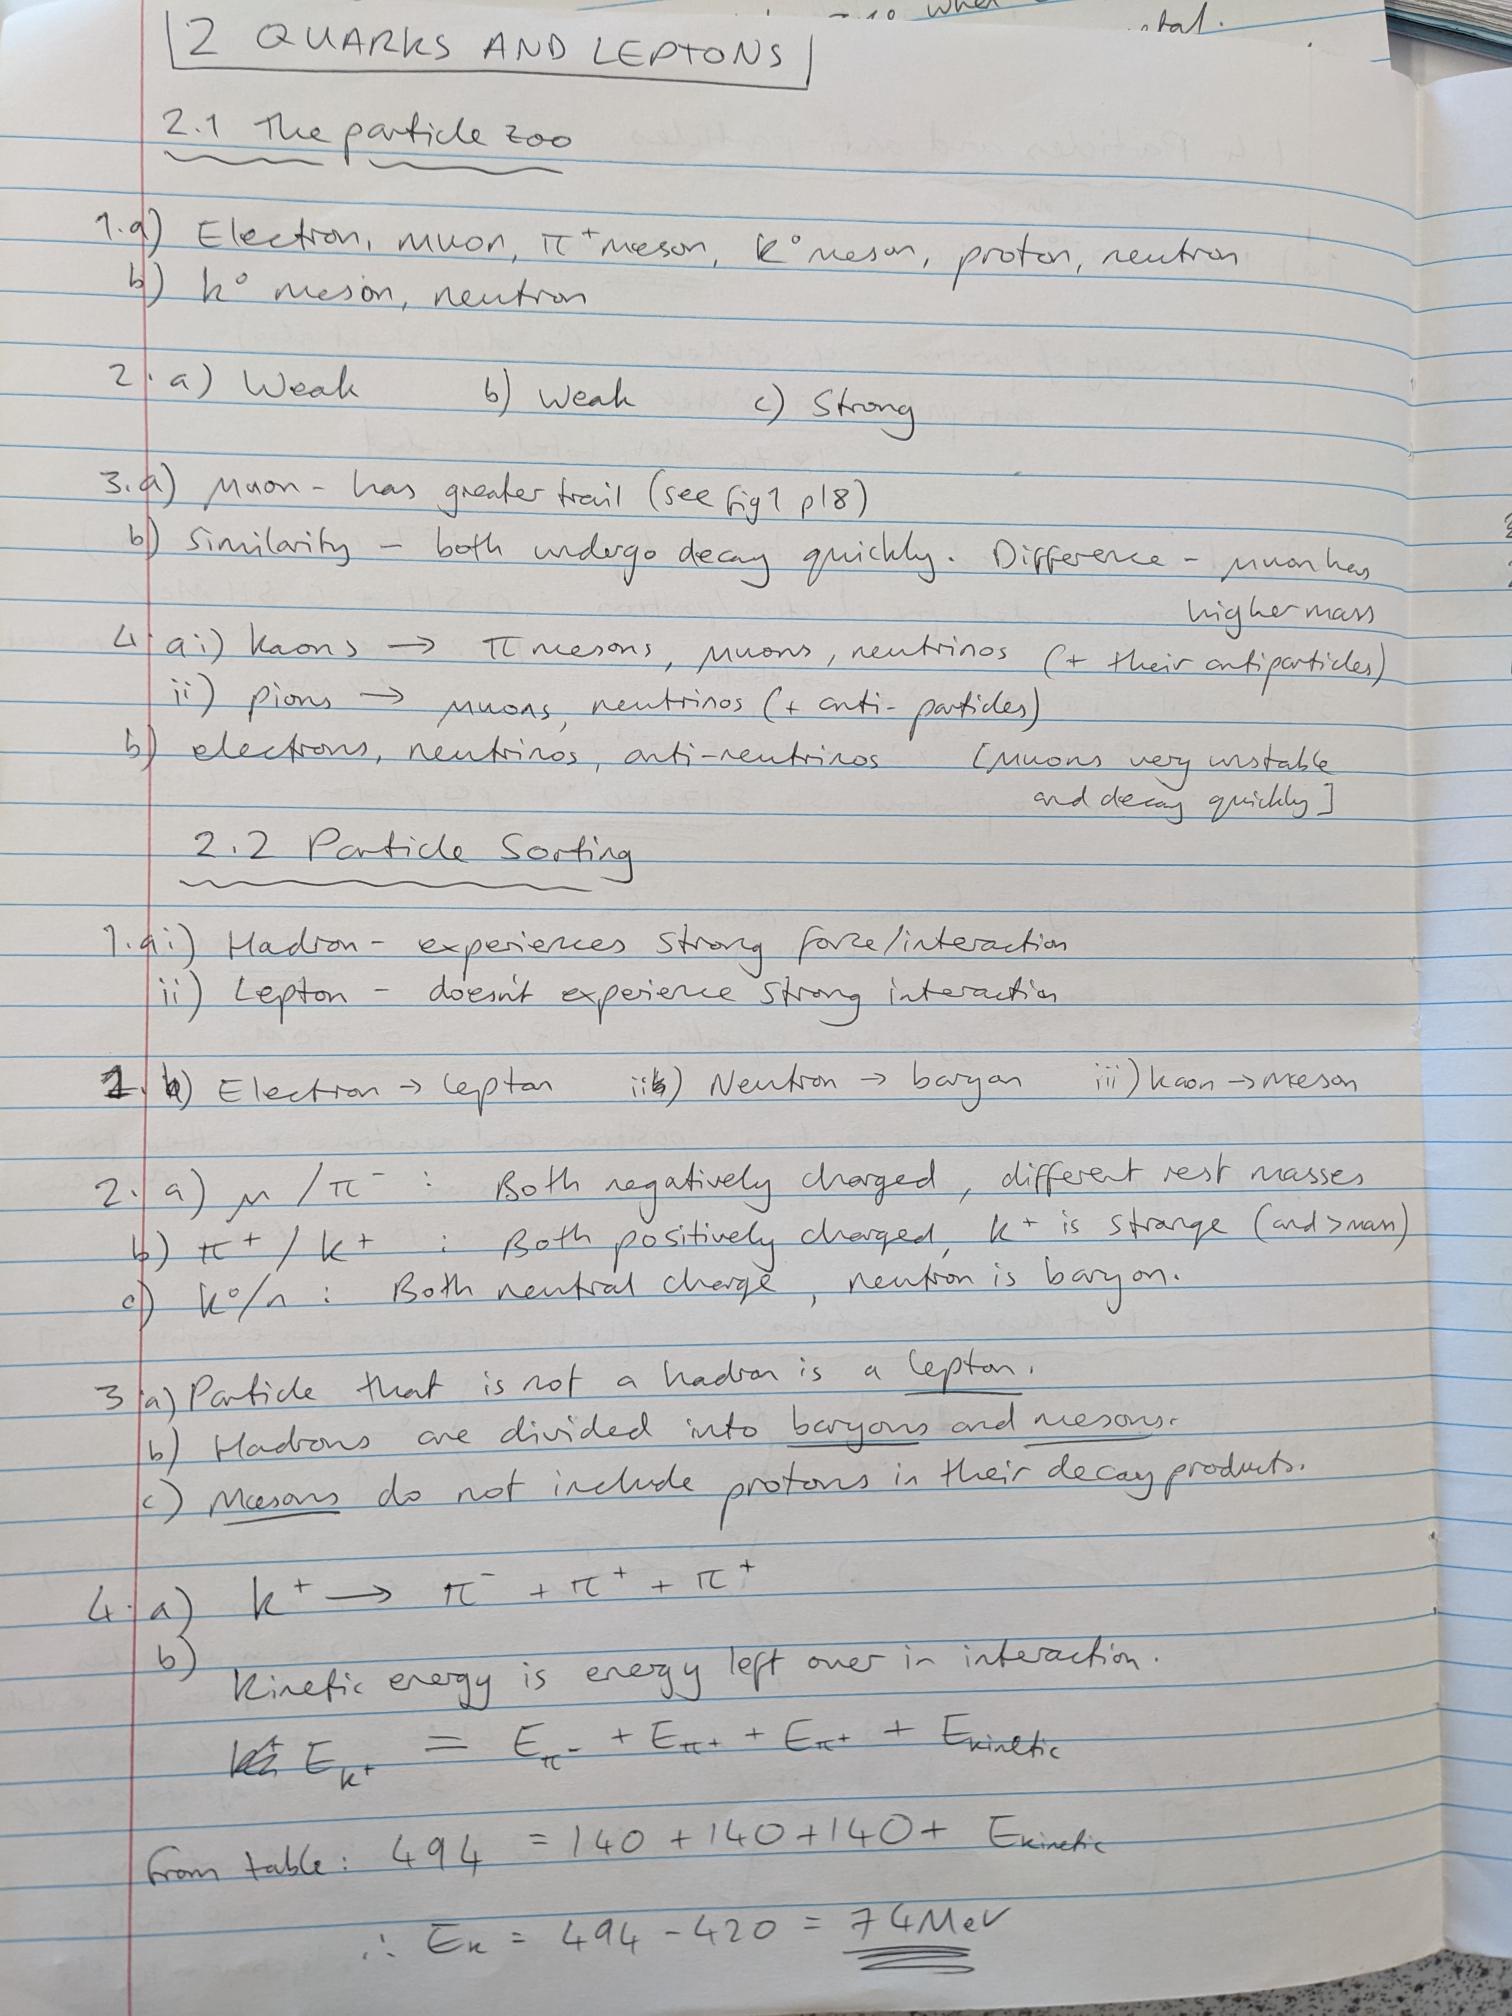 when
tal.
2 QUARKS AND LEPTONS
2.1 The particle zoo
1.a) Electron, muon, π⁺ meson, k⁰ meson, proton, neutron
b) k⁰ meson, neutron
2. a) Weak b) Weak c) Strong
3.a) Muon - has greater trail (see fig 1 p18)
b) Similarity - both undergo decay quickly. Difference - muon has
higher mass
4. ai) kaons → π mesons, muons, neutrinos (+ their antiparticles)
ii) pions → muons, neutrinos (+ anti-particles)
b) electrons, neutrinos, anti-neutrinos [Muons very unstable
and decay quickly]
2.2 Particle Sorting
1.ai) Hadron - experiences strong force/interaction
ii) Lepton - doesn't experience strong interaction
1. b) Electron → lepton ii) Neutron → baryon iii) kaon → meson
2. a) μ / π⁻ : Both negatively charged, different rest masses
b) π⁺ / k⁺ : Both positively charged, k⁺ is strange (and > mass)
c) k⁰/n : Both neutral charge, neutron is baryon.
3 a) Particle that is not a hadron is a lepton.
b) Hadrons are divided into baryons and mesons.
c) Mesons do not include protons in their decay products.
4. a) k⁺ → π⁻ + π⁺ + π⁺
b)
Kinetic energy is energy left over in interaction.
E k⁺ = E π⁻ + E π⁺ + E π⁺ + E kinetic
From table: 494 = 140 + 140 + 140 + E kinetic
∴ Ek = 494 - 420 = 74 MeV